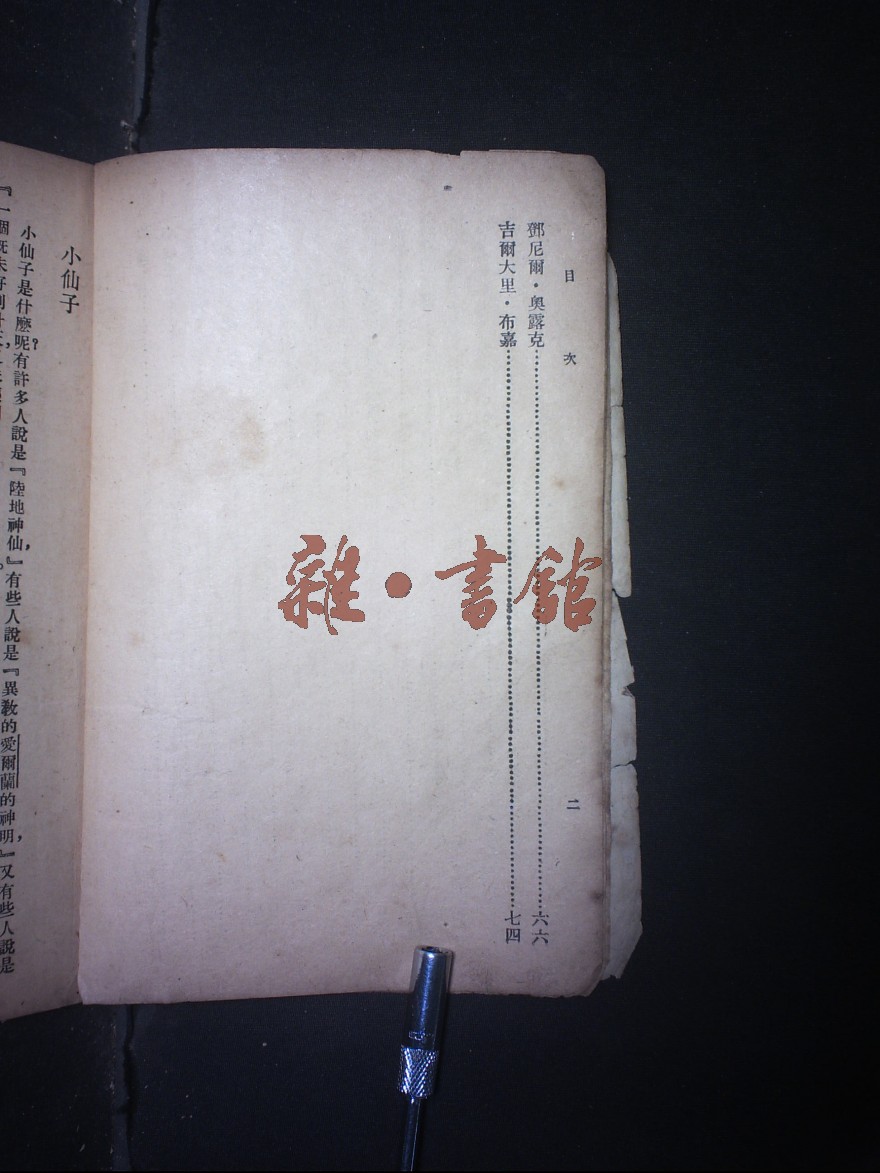 目次
二
鄧尼爾・奧露克……六六
吉爾大里・布嘉……七四
雜・書館
小仙子
小仙子是什麼呢?有許多人說是『陸地神仙,』有些人說是『異教的愛爾蘭的神明,』又有些人說是
『一個既未好到